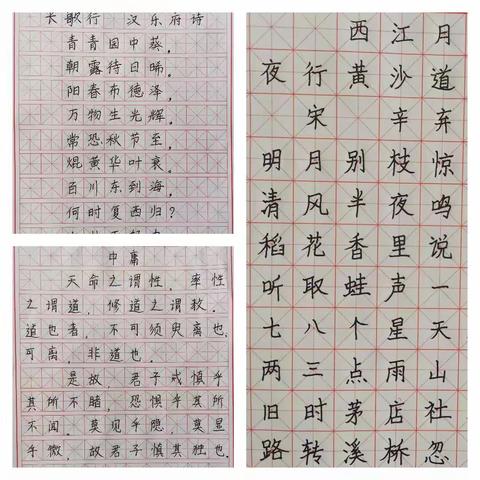 长歌行 汉乐府诗
青青园中葵，
朝露待日晞。
阳春布德泽，
万物生光辉。
常恐秋节至，
焜黄华叶衰。
百川东到海，
何时复西归？
中庸
天命之谓性，率性
之谓道，修道之谓教。
道也者，不可须臾离也，
可离，非道也。
是故，君子戒慎乎
其所不睹，恐惧乎其所
不闻。莫见乎隐，莫显
乎微，故君子慎其独也。
西江月
夜行黄沙道
宋 辛弃
明月别枝惊
清风半夜鸣
稻花香里说
听取蛙声一
七八个星天
两三点雨山
旧时茅店社
路转溪桥忽